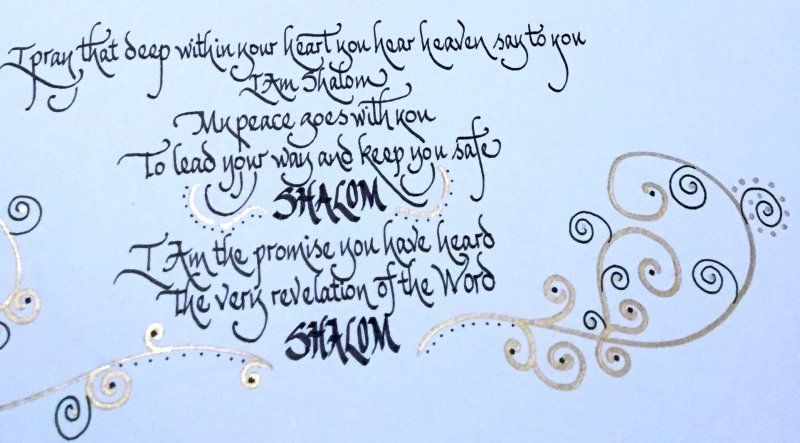 I pray that deep within your heart you hear heaven say to you
I Am Shalom
My peace goes with you
To lead your way and keep you safe
SHALOM
I Am the promise you have heard
The very revelation of the Word
SHALOM